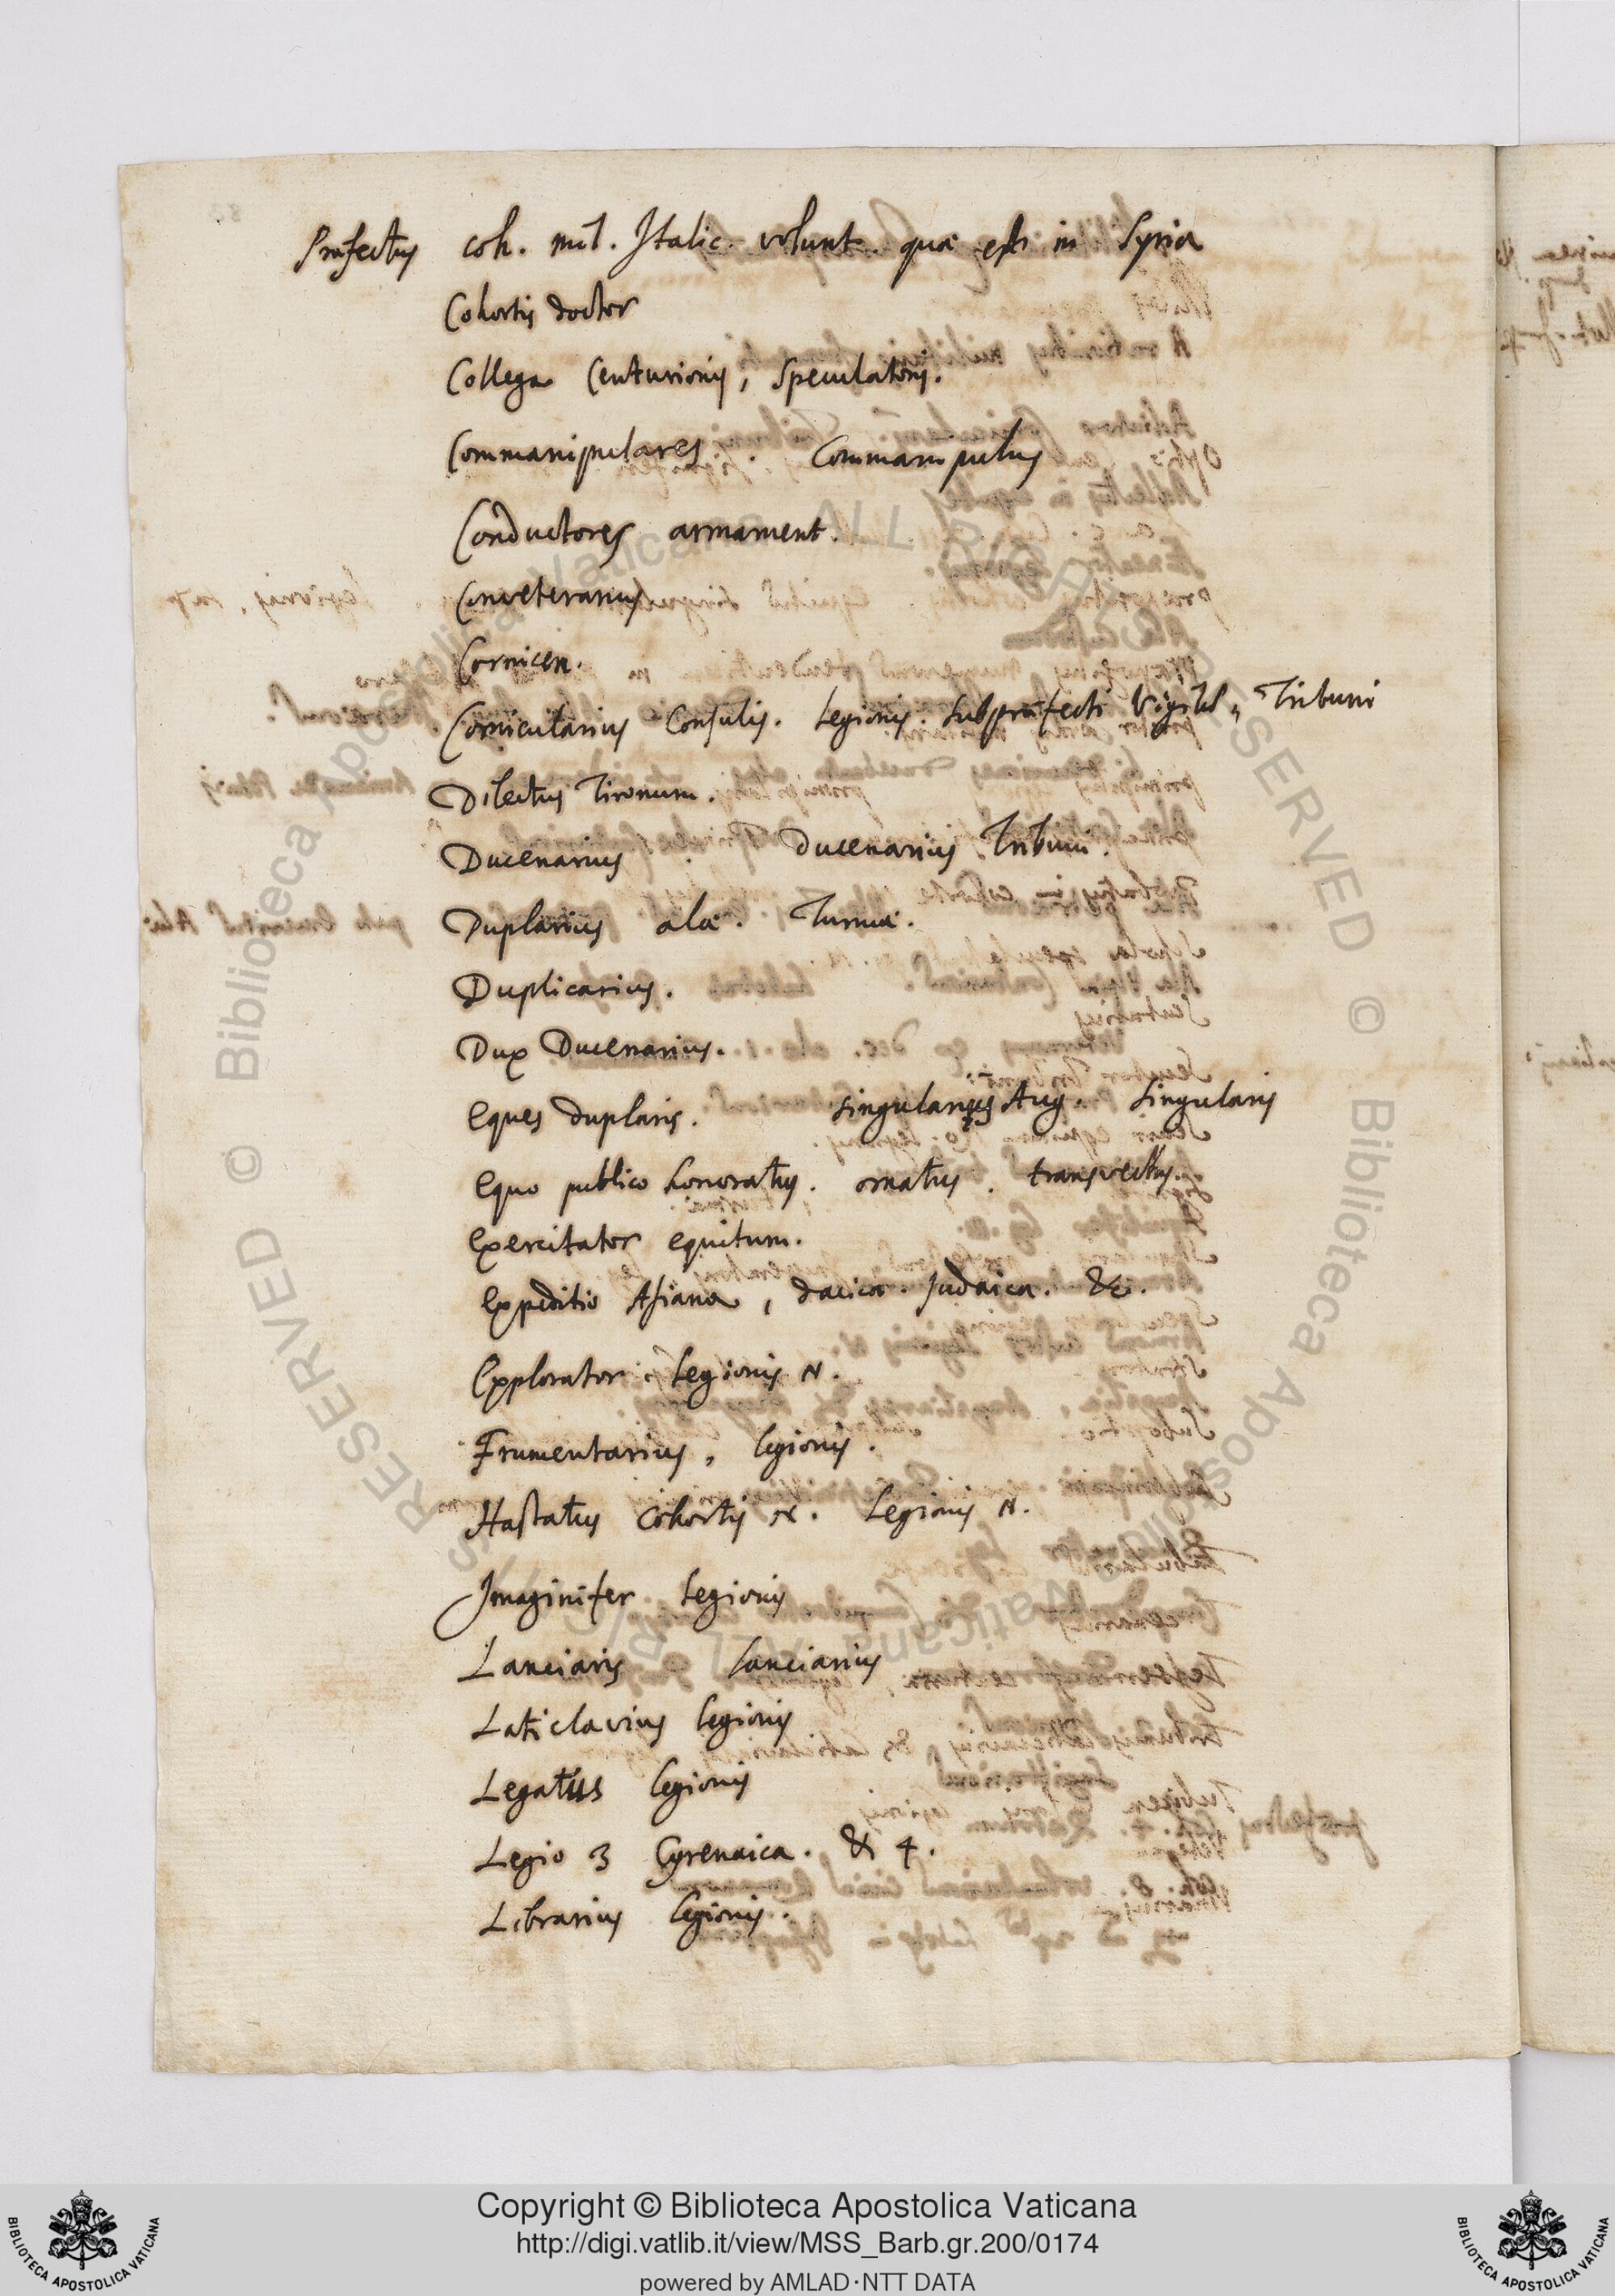 Præfectus coh. mil. Italic. volunt. quæ est in Syria
Cohortis doctor
Collega Centurionis, Speculatoris.
Commanipulares. Commanipulus
Conductores armament.
Conveteranus
Cornicen.
Cornicularius Consulis. Legionis. Subpræfecti Vigil., Tribuni
Dilectus Tironum.
Ducenarius . Ducenarius Tribuni.
Duplarius alæ. Turmæ.
Duplicarius.
Dux Ducenarius.
Eques duplaris. Singularis Aug. Singularis
Equo publico honoratus. ornatus. transvectus.
Exercitator equitum.
Expeditio Asiana, dacica. Judaica. &c.
Explorator. Legionis N.
Frumentarius, legionis.
Hastatus cohortis N. Legionis N.
Imaginifer Legionis
Lanciaris lanciarius
Laticlavius legionis
Legatus legionis
Legio 3 Cyrenaica. & 4.
Librarius legionis.
Copyright © Biblioteca Apostolica Vaticana
http://digi.vatlib.it/view/MSS_Barb.gr.200/0174
powered by AMLAD·NTT DATA